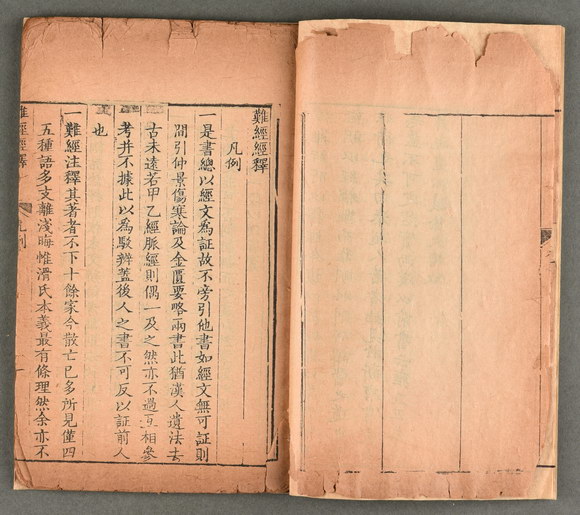 難經經釋
凡例
一是書總以經文為証故不旁引他書如經文無可証則
間引仲景傷寒論及金匱要略兩書此猶漢人遺法去
古未遠若甲乙經脈經則偶一及之然亦不過互相參
考并不據此以為駁辨蓋後人之書不可反以証前人
也
一難經注釋其著者不下十餘家今散亡已多所見僅四
五種語多支離淺晦惟滑氏本義最有條理然余亦不
難經經釋
凡例